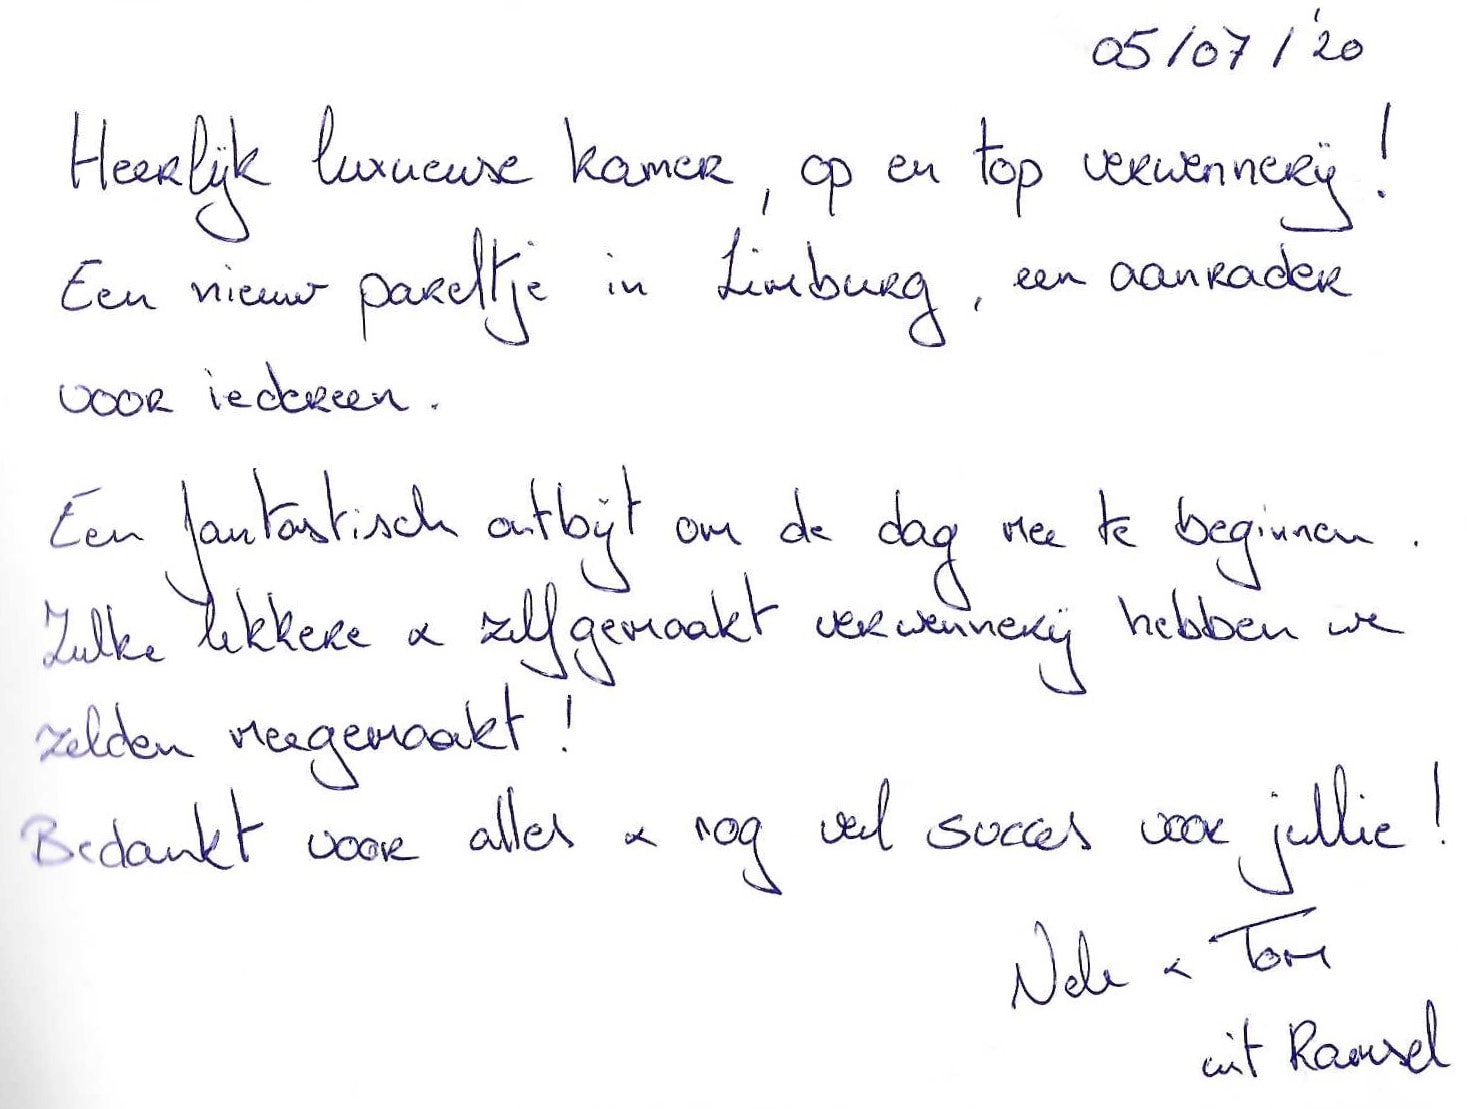 05/07/'20
Heerlijk luxueuse kamer, op en top verwennerij!
Een nieuw pareltje in Limburg, een aanrader
voor iedereen.
Een fantastisch ontbijt om de dag mee te beginnen.
Zulke lekkere & zelfgemaakt verwennerij hebben we
zelden meegemaakt!
Bedankt voor alles & nog veel succes voor jullie!
Nele & Tom
uit Ramsel